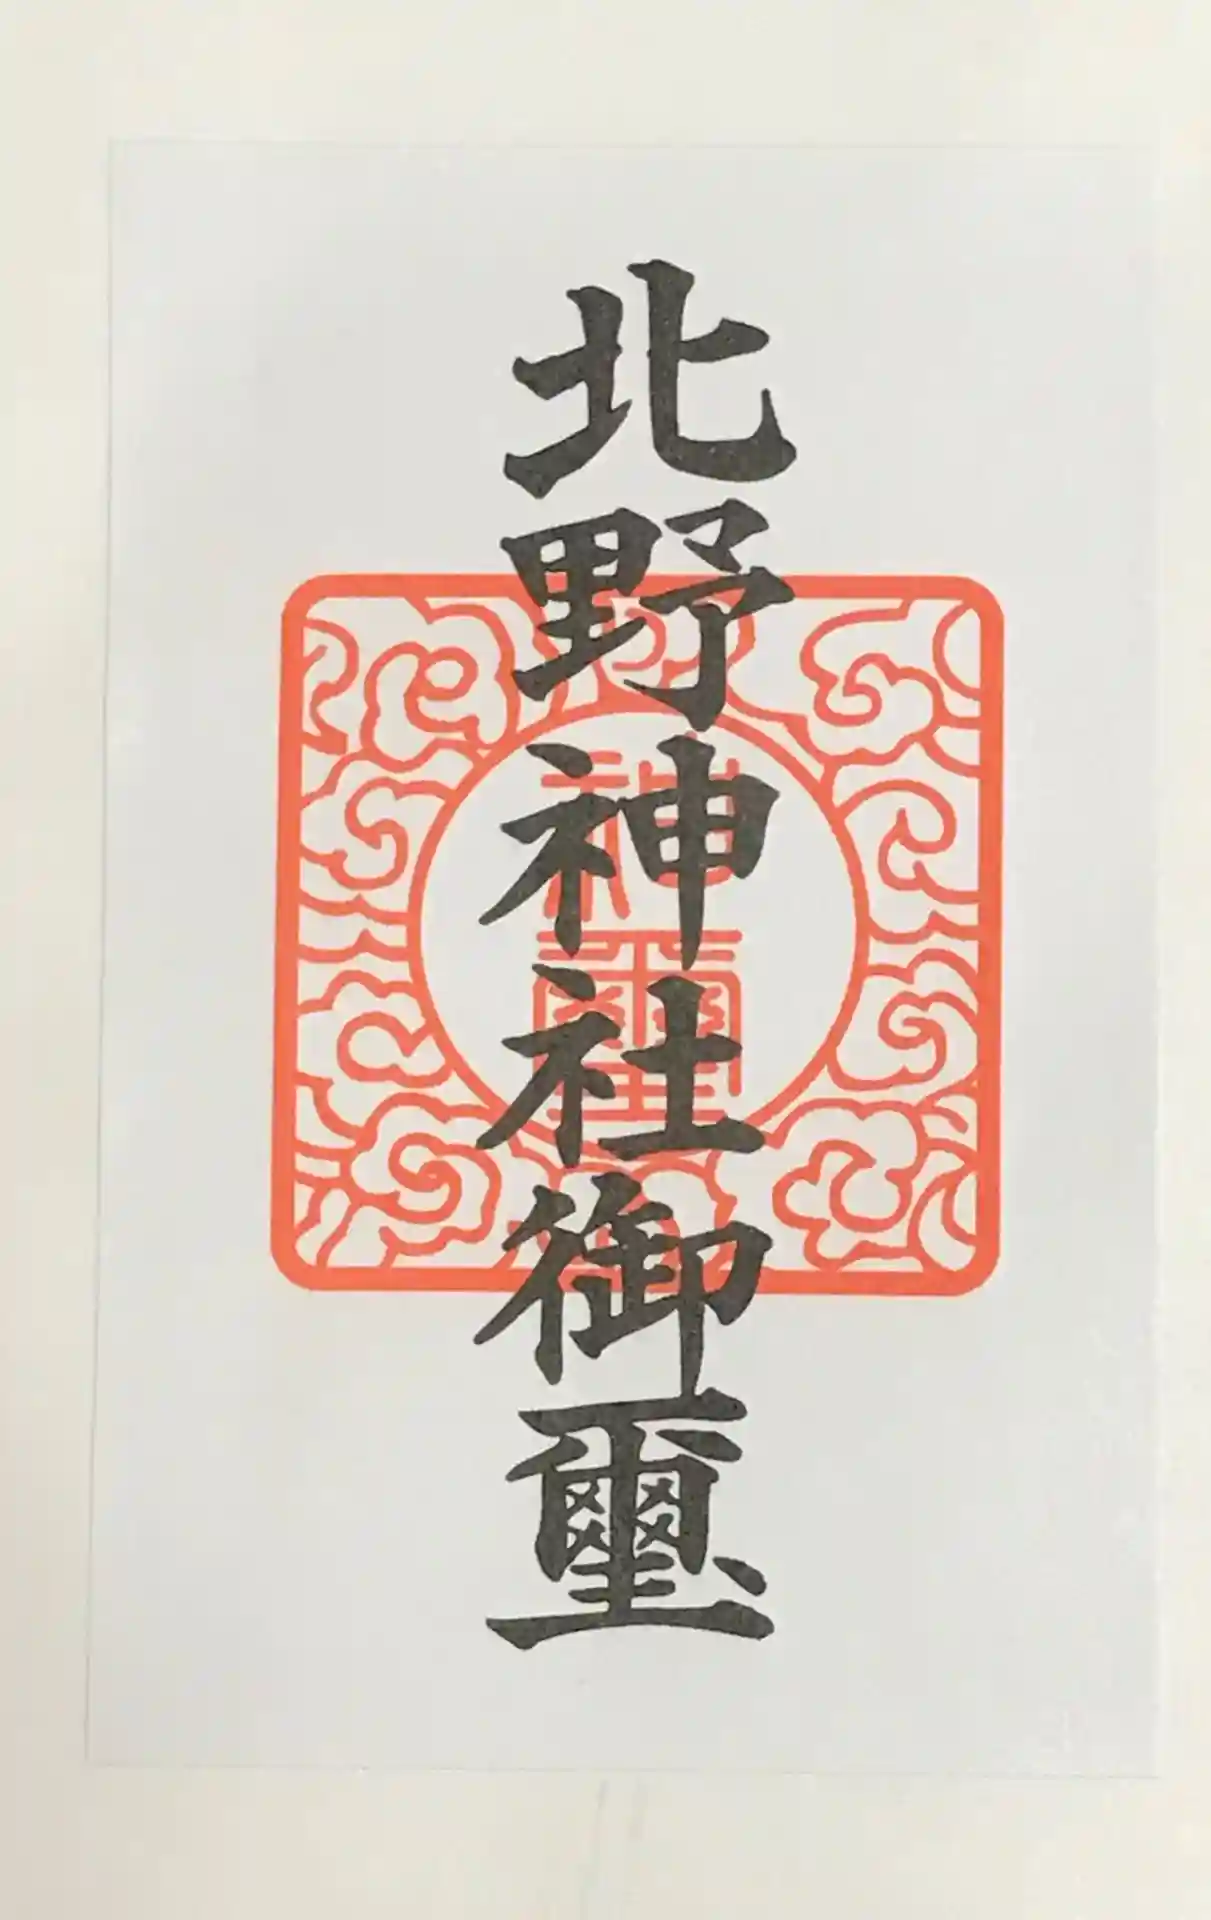 北野神社御璽
神璽